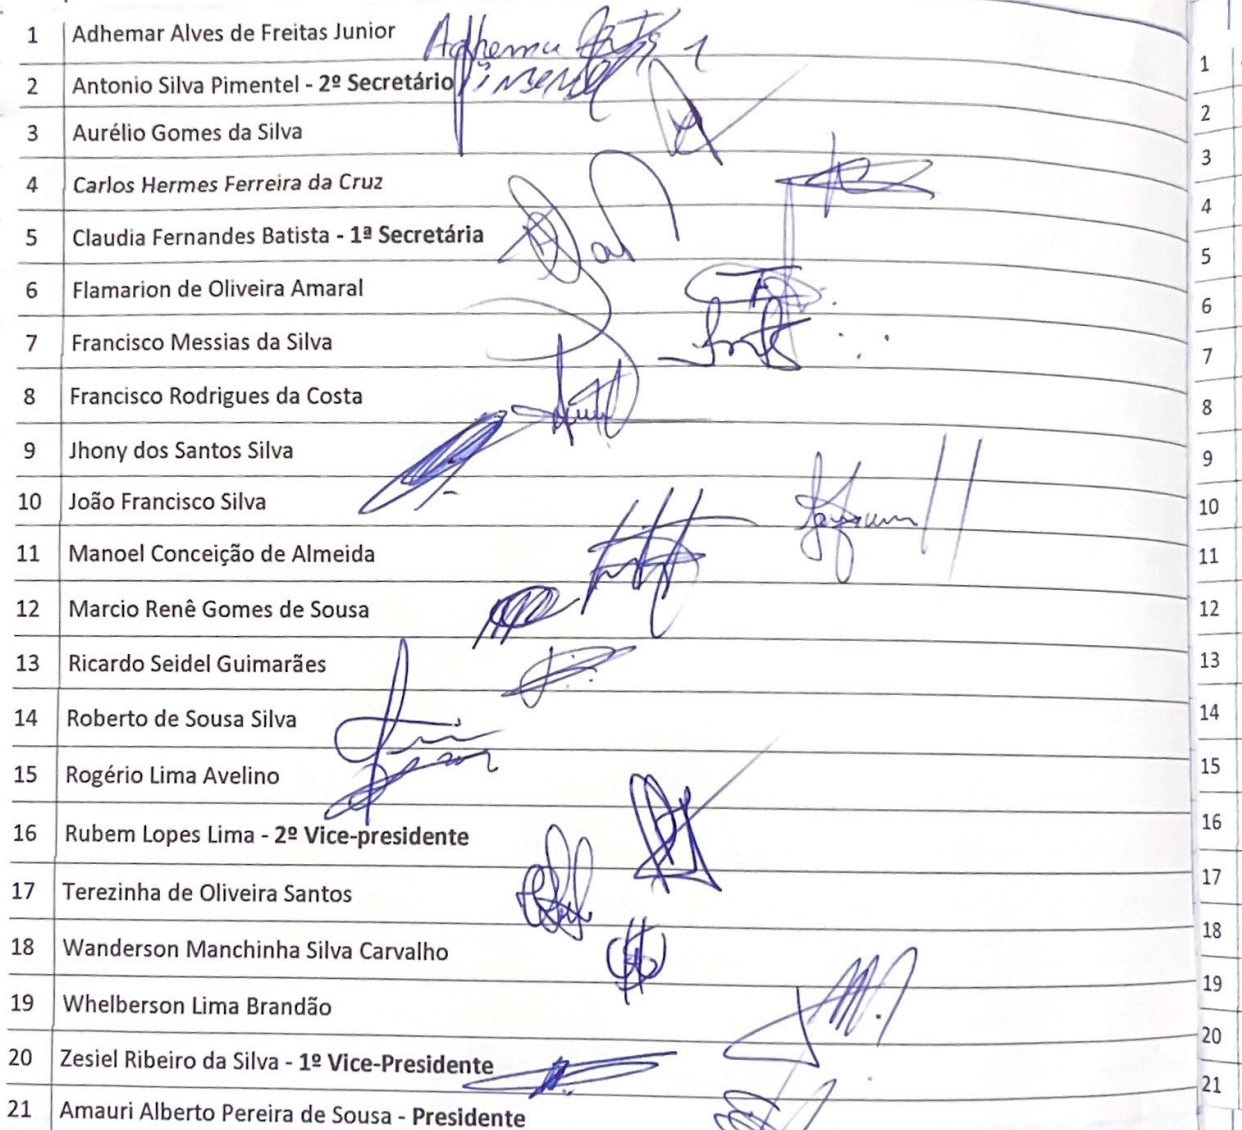 1 Adhemar Alves de Freitas Junior Adhemar 1
2 Antonio Silva Pimentel - 2º Secretário Pimentel 1
3 Aurélio Gomes da Silva 2
4 Carlos Hermes Ferreira da Cruz 3
5 Claudia Fernandes Batista - 1ª Secretária 4
6 Flamarion de Oliveira Amaral 5
7 Francisco Messias da Silva 6
8 Francisco Rodrigues da Costa 7
9 Jhony dos Santos Silva 8
10 João Francisco Silva 9
11 Manoel Conceição de Almeida 10
12 Marcio Renê Gomes de Sousa 11
13 Ricardo Seidel Guimarães 12
14 Roberto de Sousa Silva 13
15 Rogério Lima Avelino 14
16 Rubem Lopes Lima - 2º Vice-presidente 15
17 Terezinha de Oliveira Santos 16
18 Wanderson Manchinha Silva Carvalho 17
19 Whelberson Lima Brandão 18
20 Zesiel Ribeiro da Silva - 1º Vice-Presidente 19
21 Amauri Alberto Pereira de Sousa - Presidente 20
21